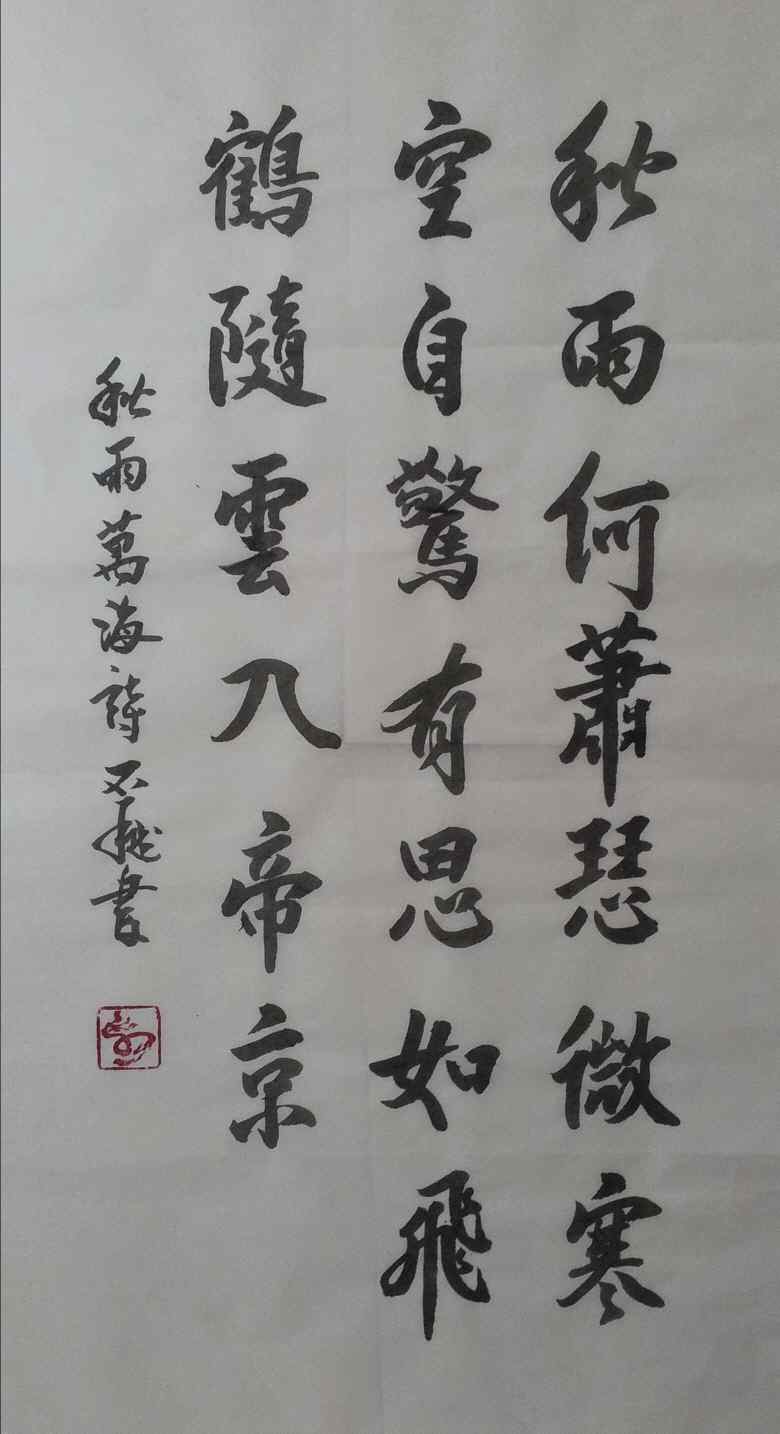 秋雨何蕭瑟微寒
空自驚有思如飛
鶴隨雲入帝京
秋雨萬海詩不桃書